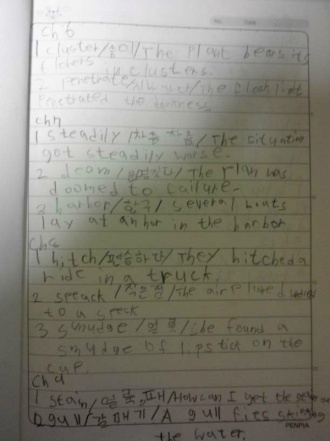 ch 6
1 cluster/송이/The plant bears its
flowers clusters.
2 penetrate/ /the flash light
penetrated the darkness
ch 7
1 steadily /차츰 차츰/The situation
got steadily worse.
2 doom/ /The plan was
doomed to failure.
3 harbor/항구/ several boats
lay at anhor in the harbor
ch 8
1 hitch/편승하다/They hitched a
ride in a truck.
2 speack /작은 점/The airplane
to a speck
3 smudge /얼룩/she found a
smudge of lipstick on the
cup.
ch 9
1 stain/얼룩, /How can I get the
2 gull/갈매기/A gull flies
the water.
PENPIA